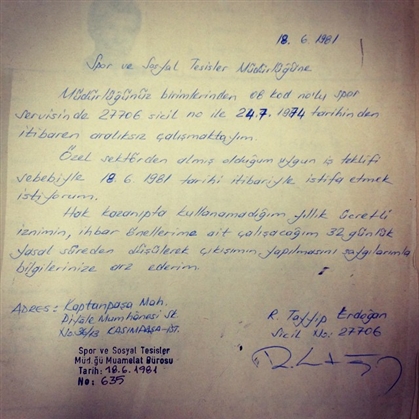 18.6.1981
Spor ve Sosyal Tesisler Müdürlüğüne
Müdürlüğünüz birimlerinden 08 kod no'lu spor
servisinde 27706 sicil no ile 24.7.1974 tarihinden
itibaren aralıksız çalışmaktayım.
Özel sektörden almış olduğum uygun iş teklifi
sebebiyle 18.6.1981 tarihi itibariyle istifa etmek
istiyorum.
Hak kazanıpta kullanamadığım yıllık ücretli
iznimin, ihbar önellerime ait çalışacağım 32 günlük
yasal süreden düşülerek çıkışımın yapılmasını saygılarımla
bilgilerinize arz ederim.
ADRES: Kaptanpaşa Mah.
Mumhanesi sk.
No: KASIMPAŞA-İST.
R. Tayyip Erdoğan
Sicil No: 27706
Spor ve Sosyal Tesisler
Müd.ğü Muamelat Bürosu
Tarih: 18.6.1981
No: 635